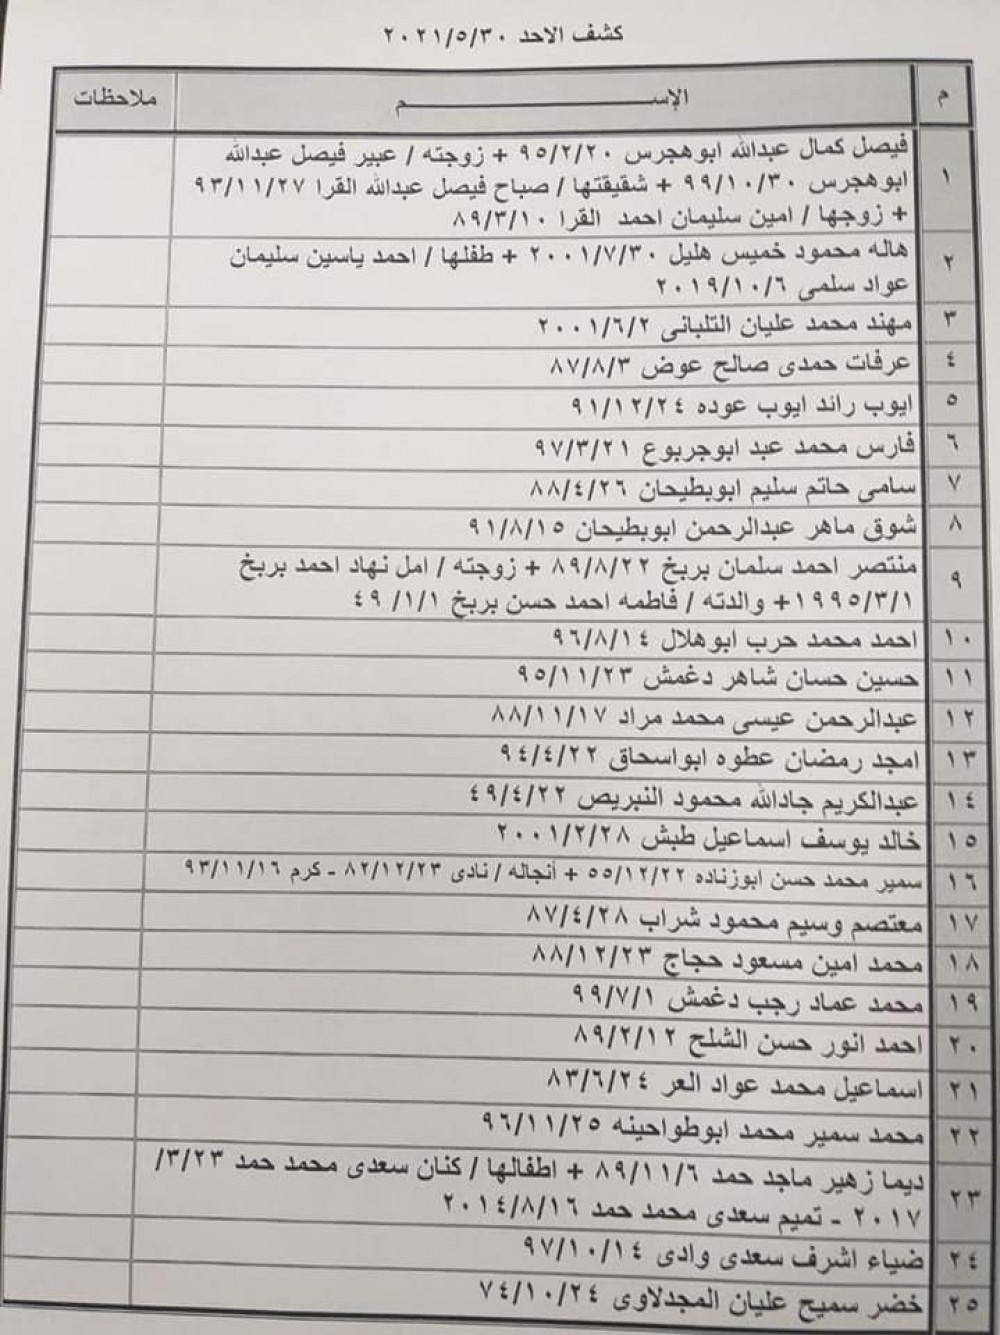 كشف الاحد ٢٠٢١/٥/٣٠
م الإســـــــــــــــــم ملاحظات
١ فيصل كمال عبدالله ابوهجرس ٩٥/٢/٢٠ + زوجته / عبير فيصل عبدالله
ابوهجرس ٩٩/١٠/٣٠ + شقيقتها / صباح فيصل عبدالله القرا ٩٣/١١/٢٧
+ زوجها / امين سليمان احمد القرا ٨٩/٣/١٠
٢ هاله محمود خميس هليل ٢٠٠١/٧/٣٠ + طفلها / احمد ياسين سليمان
عواد سلمى ٢٠١٩/١٠/٦
٣ مهند محمد عليان التلبانى ٢٠٠١/٦/٢
٤ عرفات حمدى صالح عوض ٨٧/٨/٣
٥ ايوب رائد ايوب عوده ٩١/١٢/٢٤
٦ فارس محمد عبد ابوجربوع ٩٧/٣/٢١
٧ سامى حاتم سليم ابوبطيحان ٨٨/٤/٢٦
٨ شوق ماهر عبدالرحمن ابوبطيحان ٩١/٨/١٥
٩ منتصر احمد سلمان بربخ ٨٩/٨/٢٢ + زوجته / امل نهاد احمد بربخ
١٩٩٥/٣/١+ والدته / فاطمه احمد حسن بربخ ٤٩/١/١
١٠ احمد محمد حرب ابوهلال ٩٦/٨/١٤
١١ حسين حسان شاهر دغمش ٩٥/١١/٢٣
١٢ عبدالرحمن عيسى محمد مراد ٨٨/١١/١٧
١٣ امجد رمضان عطوه ابواسحاق ٩٤/٤/٢٢
١٤ عبدالكريم جادالله محمود النبريص ٤٩/٤/٢٢
١٥ خالد يوسف اسماعيل طبش ٢٠٠١/٢/٢٨
١٦ سمير محمد حسن ابوزناده ٥٥/١٢/٢٢ + أنجاله / نادى ٨٢/١٢/٢٣ - كرم ٩٣/١١/١٦
١٧ معتصم وسيم محمود شراب ٨٧/٤/٢٨
١٨ محمد امين مسعود حجاج ٨٨/١٢/٢٣
١٩ محمد عماد رجب دغمش ٩٩/٧/١
٢٠ احمد انور حسن الشلح ٨٩/٢/١٢
٢١ اسماعيل محمد عواد العر ٨٣/٦/٢٤
٢٢ محمد سمير محمد ابوطواحينه ٩٦/١١/٢٥
٢٣ ديما زهير ماجد حمد ٨٩/١١/٦ + اطفالها / كنان سعدى محمد حمد ٣/٢٣/
٢٠١٧ - تميم سعدى محمد حمد ٢٠١٤/٨/١٦
٢٤ ضياء اشرف سعدى وادى ٩٧/١٠/١٤
٢٥ خضر سميح عليان المجدلاوى ٧٤/١٠/٢٤